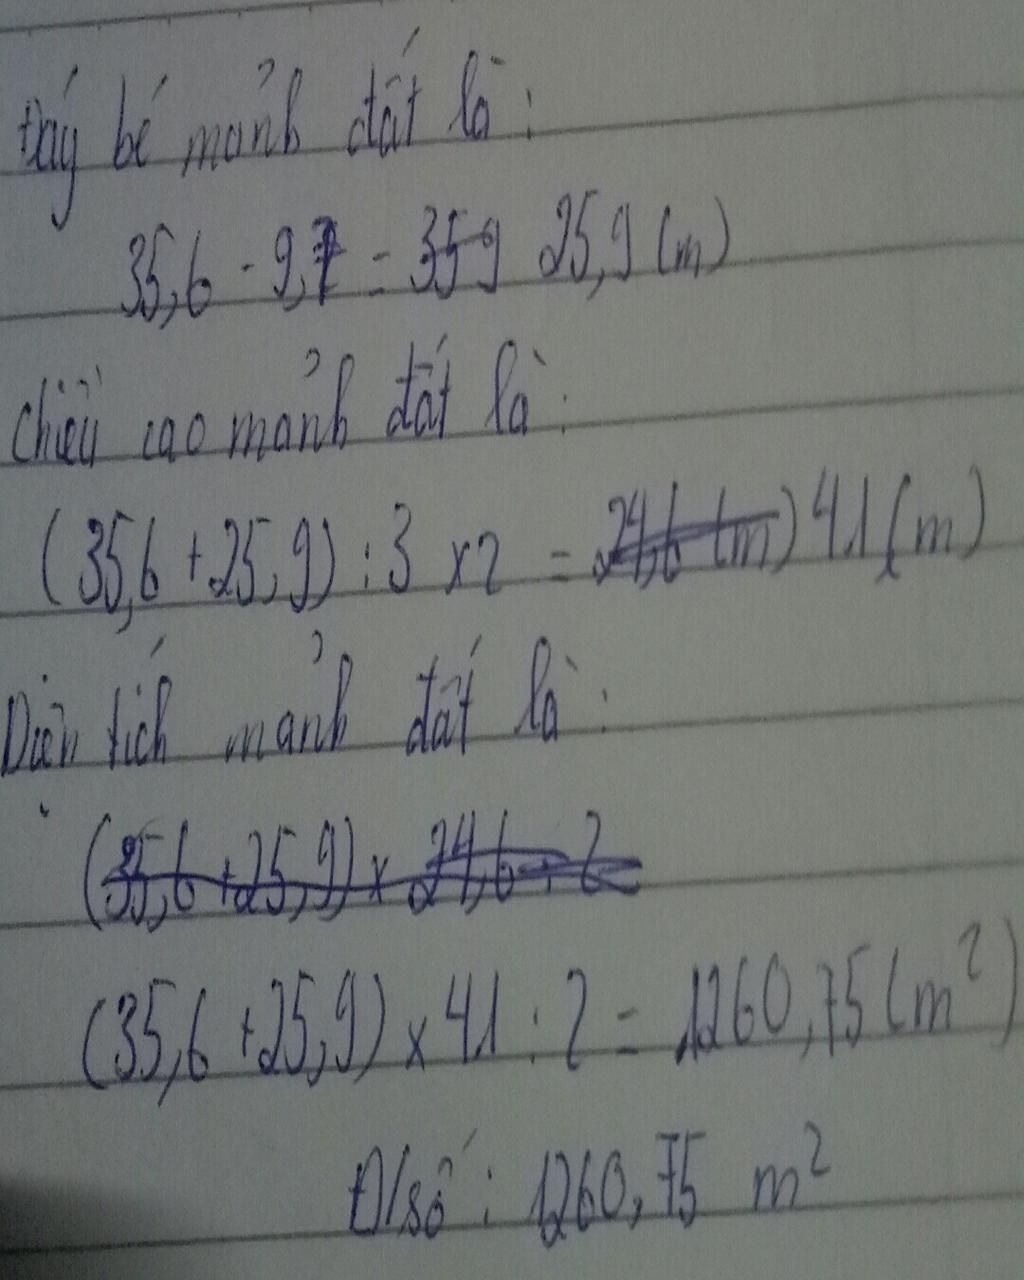 Đáy bé mảnh đất là :
35,6 - 9,7 = 359 25,9 (m)
Chiều cao mảnh đất là :
(35,6 + 25,9) : 3 x 2 = 24,6 (m) 41 (m)
Diện tích mảnh đất là :
(35,6 + 25,9) x 24,6 : 2
(35,6 + 25,9) x 41 : 2 = 1260,75 (m²)
Đ/số : 1260,75 m²